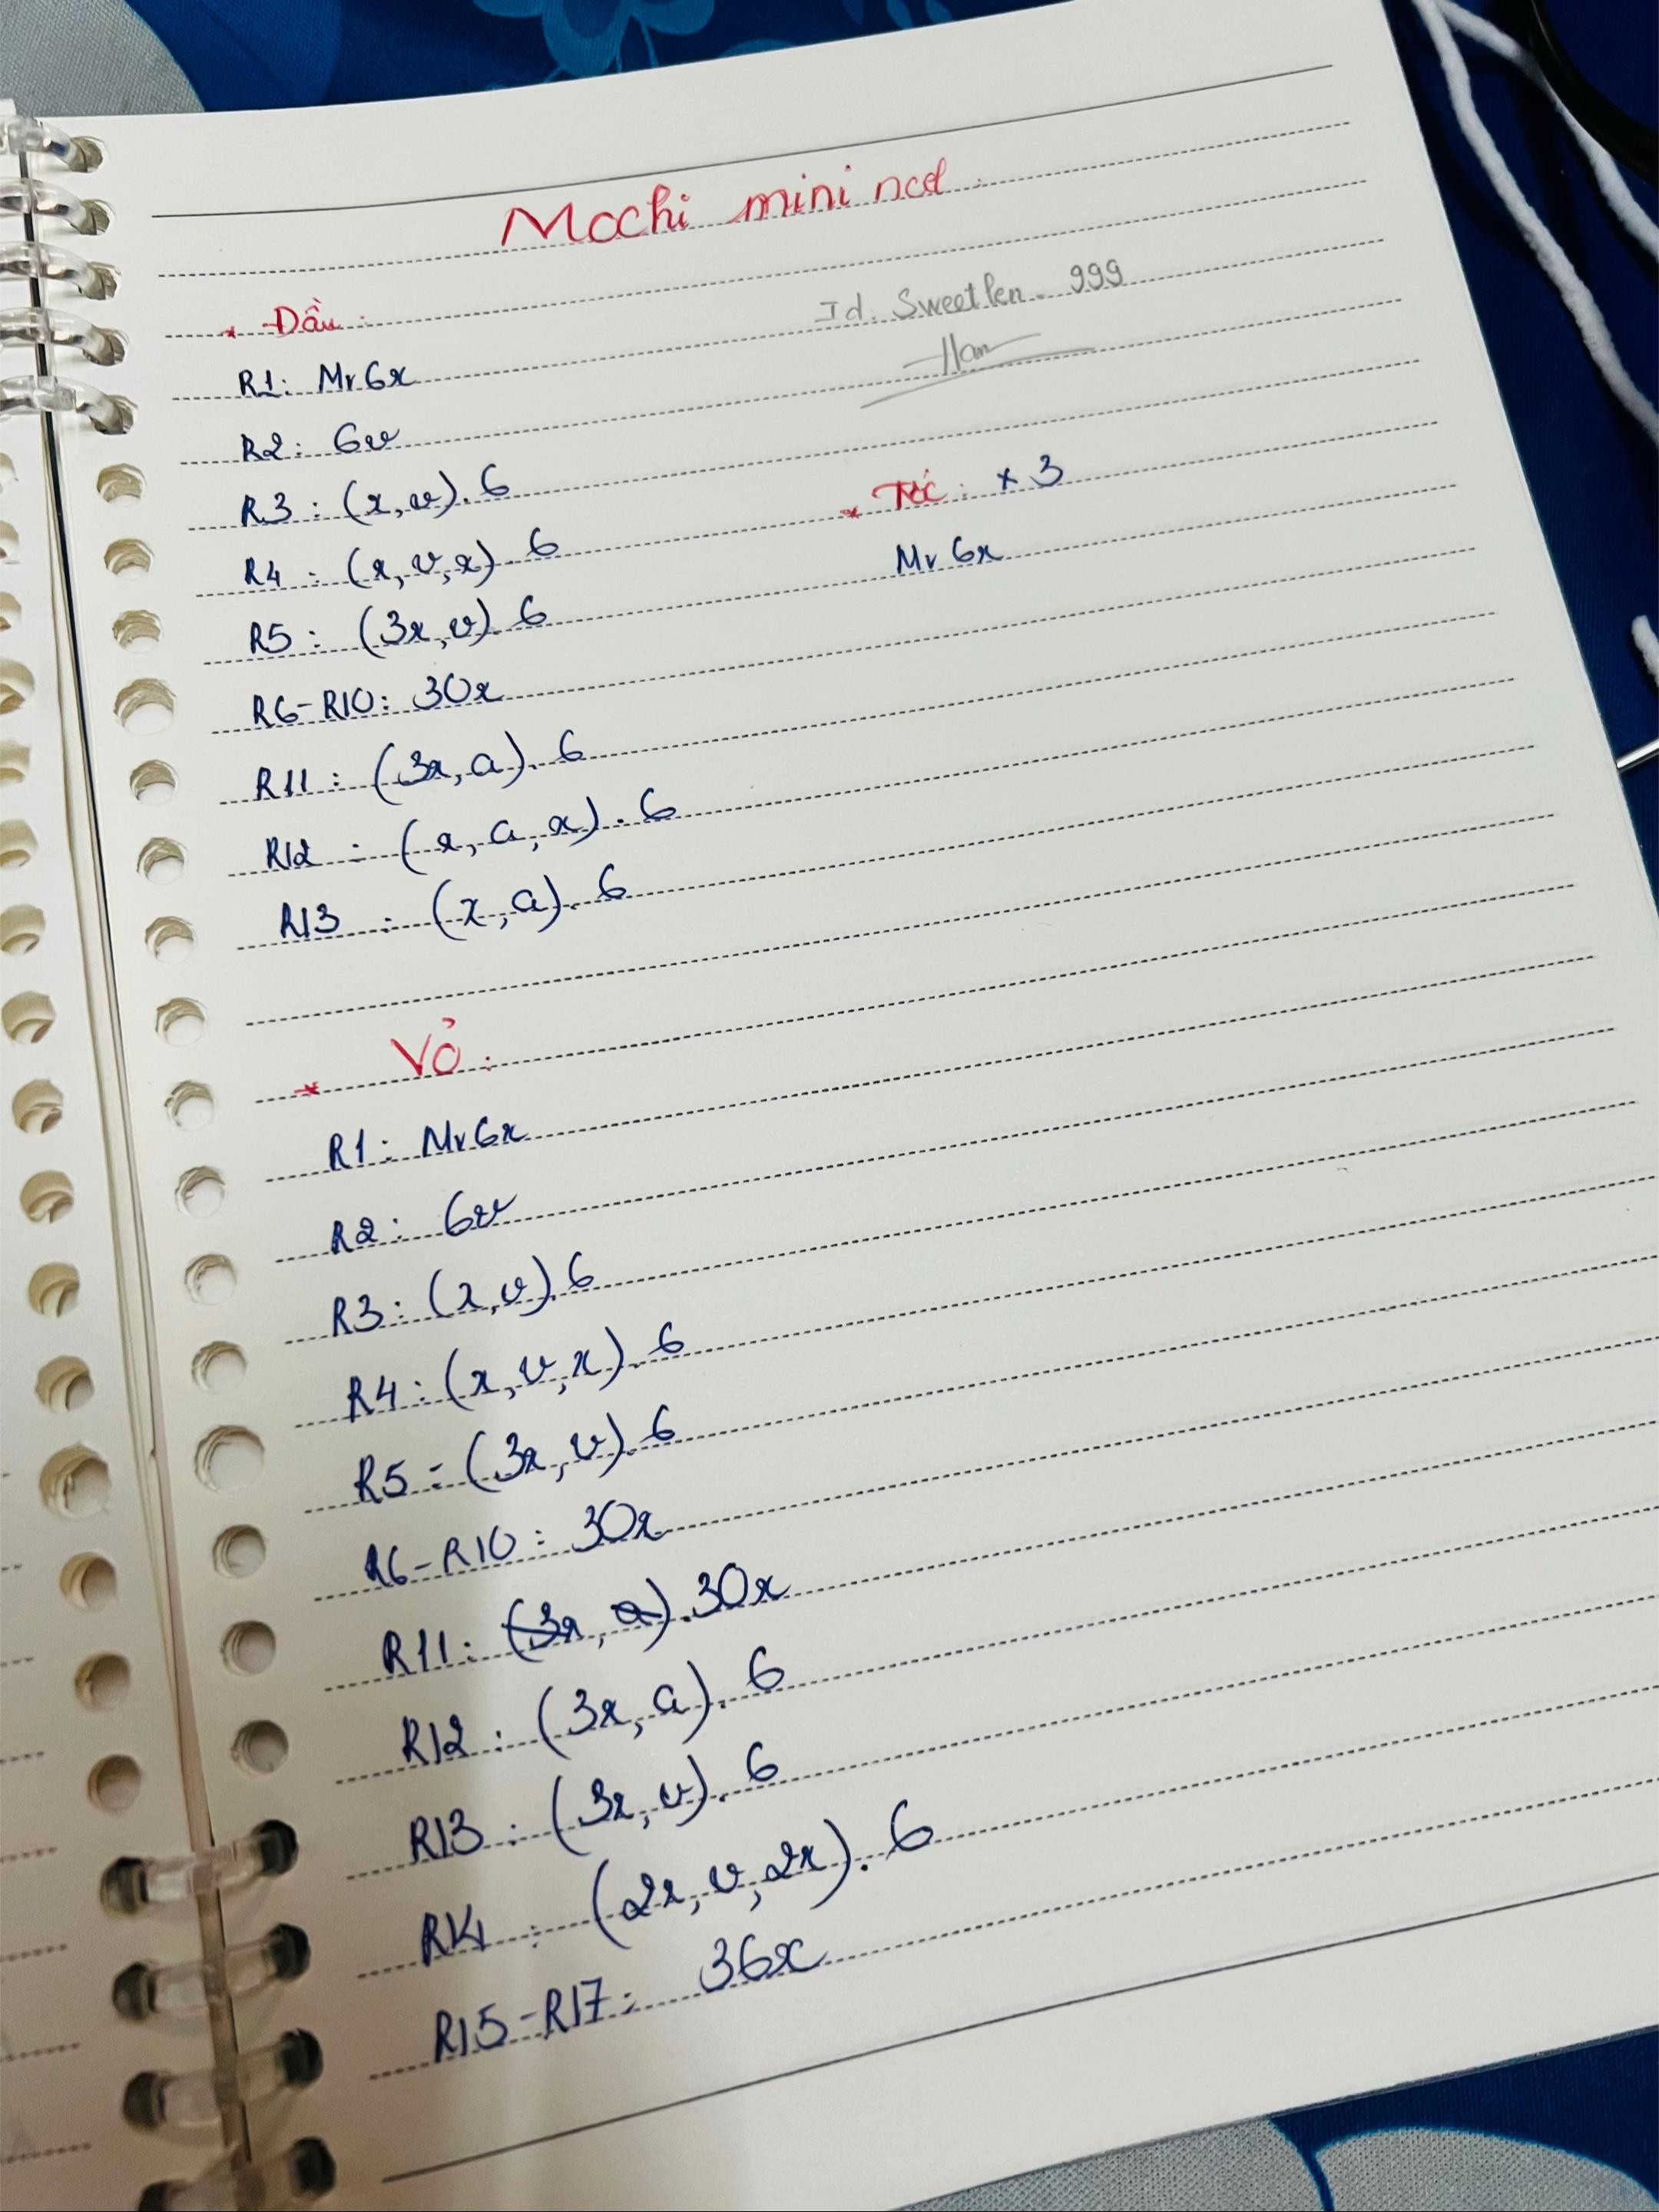 Mochi mini ncd
* Đầu:
Id: Sweet len. 999
R1: Mr 6x
R2: 6v
R3: (x,v).6
* Tóc: x 3
Mr 6x
R4: (x,v,x).6
R5: (3x,v).6
R6-R10: 30x
R11: (3x,a).6
R12: (x,a,x).6
R13: (x,a).6
* Vỏ:
R1: Mr 6x
R2: 6v
R3: (x,v).6
R4: (x,v,x).6
R5: (3x,v).6
R6-R10: 30x
R11: (3x,a).30x
R12: (3x,a).6
R13: (3x,v).6
R14: (2x,v,2x).6
R15-R17: 36x